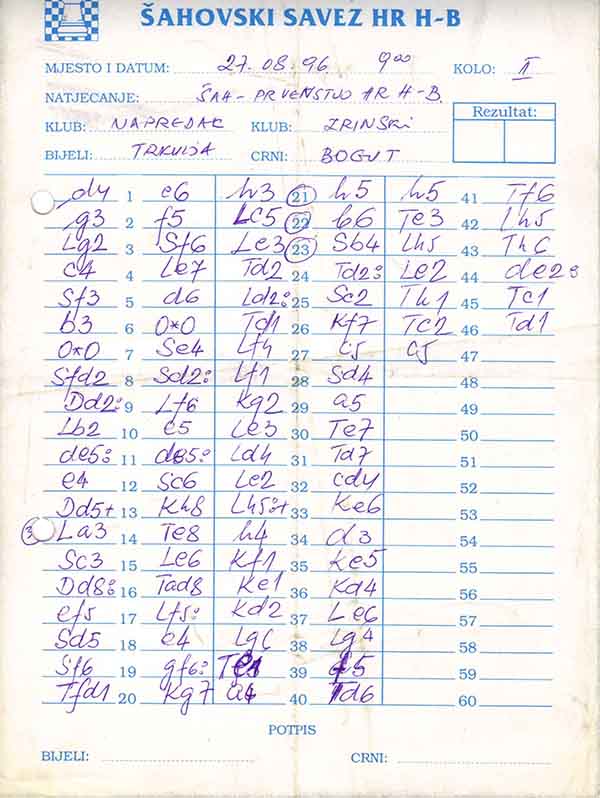 ŠAHOVSKI SAVEZ HR H-B
MJESTO I DATUM: 27. 08. 96. 9⁰⁰ KOLO: I
NATJECANJE: ŠAH - PRVENSTVO HR H-B.
Rezultat:
KLUB: NAPREDAK KLUB: ZRINSKI
BIJELI: TRKULJA CRNI: BOGUT
d4 1 e6 h3 21 h5 h5 41 Tf6
g3 2 f5 Lc5 22 b6 Te3 42 Lh5
Lg2 3 Sf6 Le3 23 Sb4 Lh5 43 Th6
c4 4 Le7 Td2 24 Td2: Le2 44 de2:
Sf3 5 d6 Ld2: 25 Sc2 Th1 45 Tc1
b3 6 0*0 Td1 26 Kf7 Tc2 46 Td1
0*0 7 Se4 Lf4 27 c5 c5 47
Sfd2 8 Sd2: Lf1 28 Sd4 48
Dd2: 9 Lf6 Kg2 29 a5 49
Lb2 10 e5 Le3 30 Te7 50
de5: 11 de5: Ld4 31 Td7 51
e4 12 Sc6 Le2 32 cd4 52
Dd5+ 13 Kh8 Lh5:+ 33 Ke6 53
3 La3 14 Te8 h4 34 d3 54
Sc3 15 Le6 Kf1 35 Ke5 55
Dd8: 16 Tad8 Ke1 36 Kd4 56
ef5 17 Lf5: Kd2 37 Le6 57
Sd5 18 e4 Lg6 38 Lg4 58
Sf6 19 gf6: 39 59
Tfd1 20 Kg7 a4 40 Td6 60
POTPIS
BIJELI: CRNI: